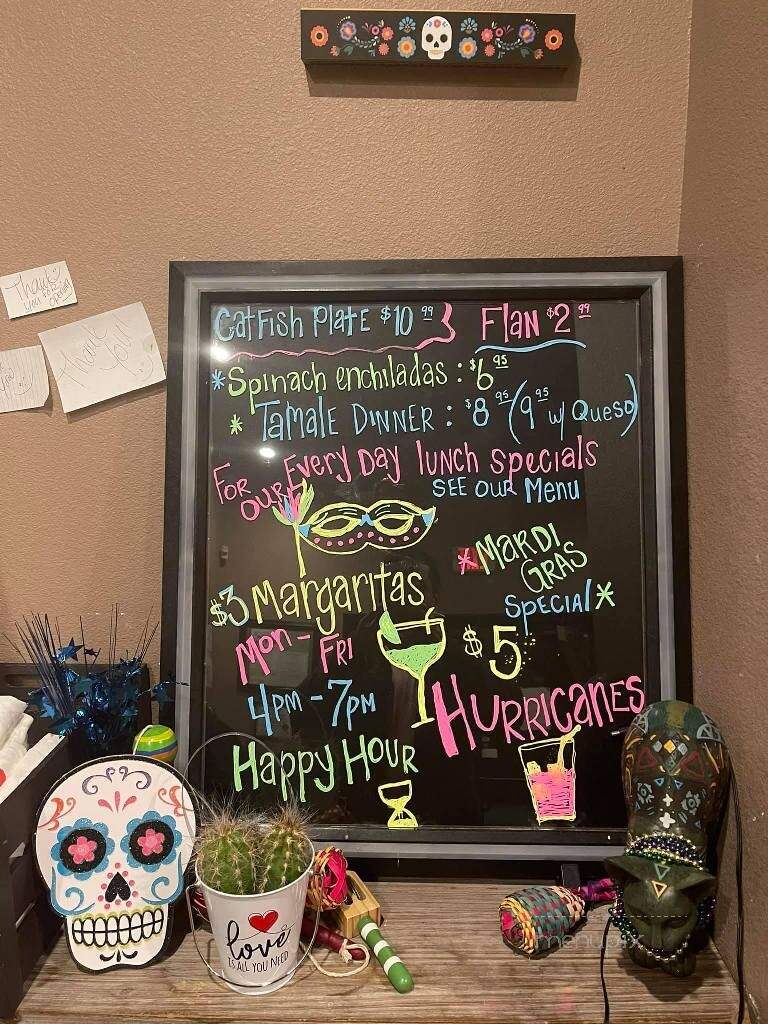 Thank you for coming
Thank You!
Catfish Plate $10.99 Flan $2.99
*Spinach enchiladas: $6.95
* Tamale Dinner: $8.95 (9.95 w/ Queso)
For our Every Day lunch specials
See our Menu
*Mardi Gras
Special*
$3 Margaritas
Mon - Fri
4pm - 7pm
Happy Hour
$5
Hurricanes
love
IS ALL YOU NEED
menupix